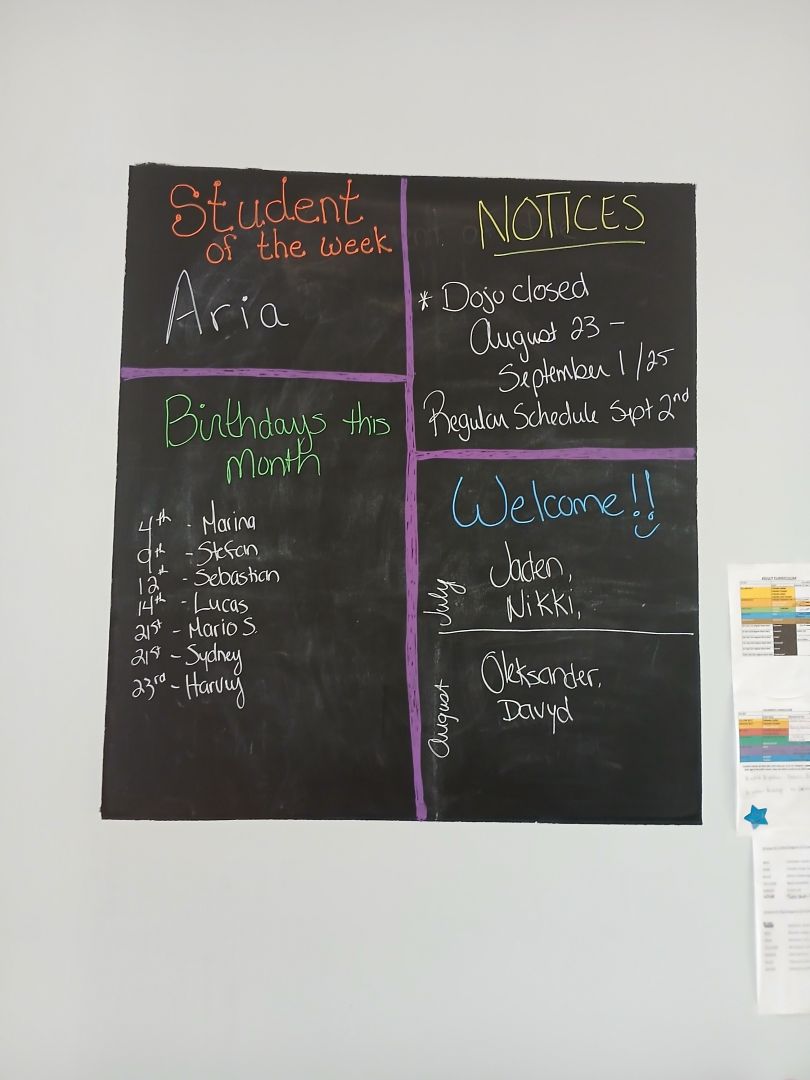 Student
of the week
Aria
NOTICES
* Dojo closed
August 23 -
September 1/25
Regular Schedule Sept 2nd
Birthdays this
Month
4th - Marina
9th - Stefan
12th - Sebastian
14th - Lucas
21st - Mario S.
21st - Sydney
23rd - Harvey
Welcome!!
July
Jaden,
Nikki,
August
Oleksander,
Davyd
ADULT CURRICULUM